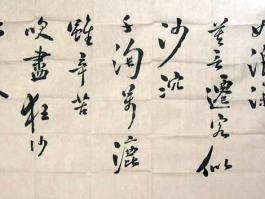 如浪深
莫言遷客似
沙沉
千淘萬漉
雖辛苦
吹盡狂沙